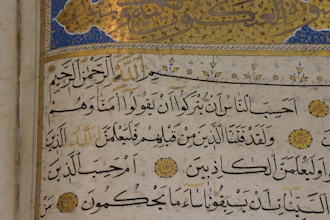 العنكبوت
الله الرحمن الرحيم
احسب الناس ان يتركوا ان يقولوا آمنا وهم
ولقد فتنا الذين من قبلهم فليعلمن الله الذين
وليعلمن الكاذبين ام حسب الذين
ان يسبقونا ساء ما يحكمون من